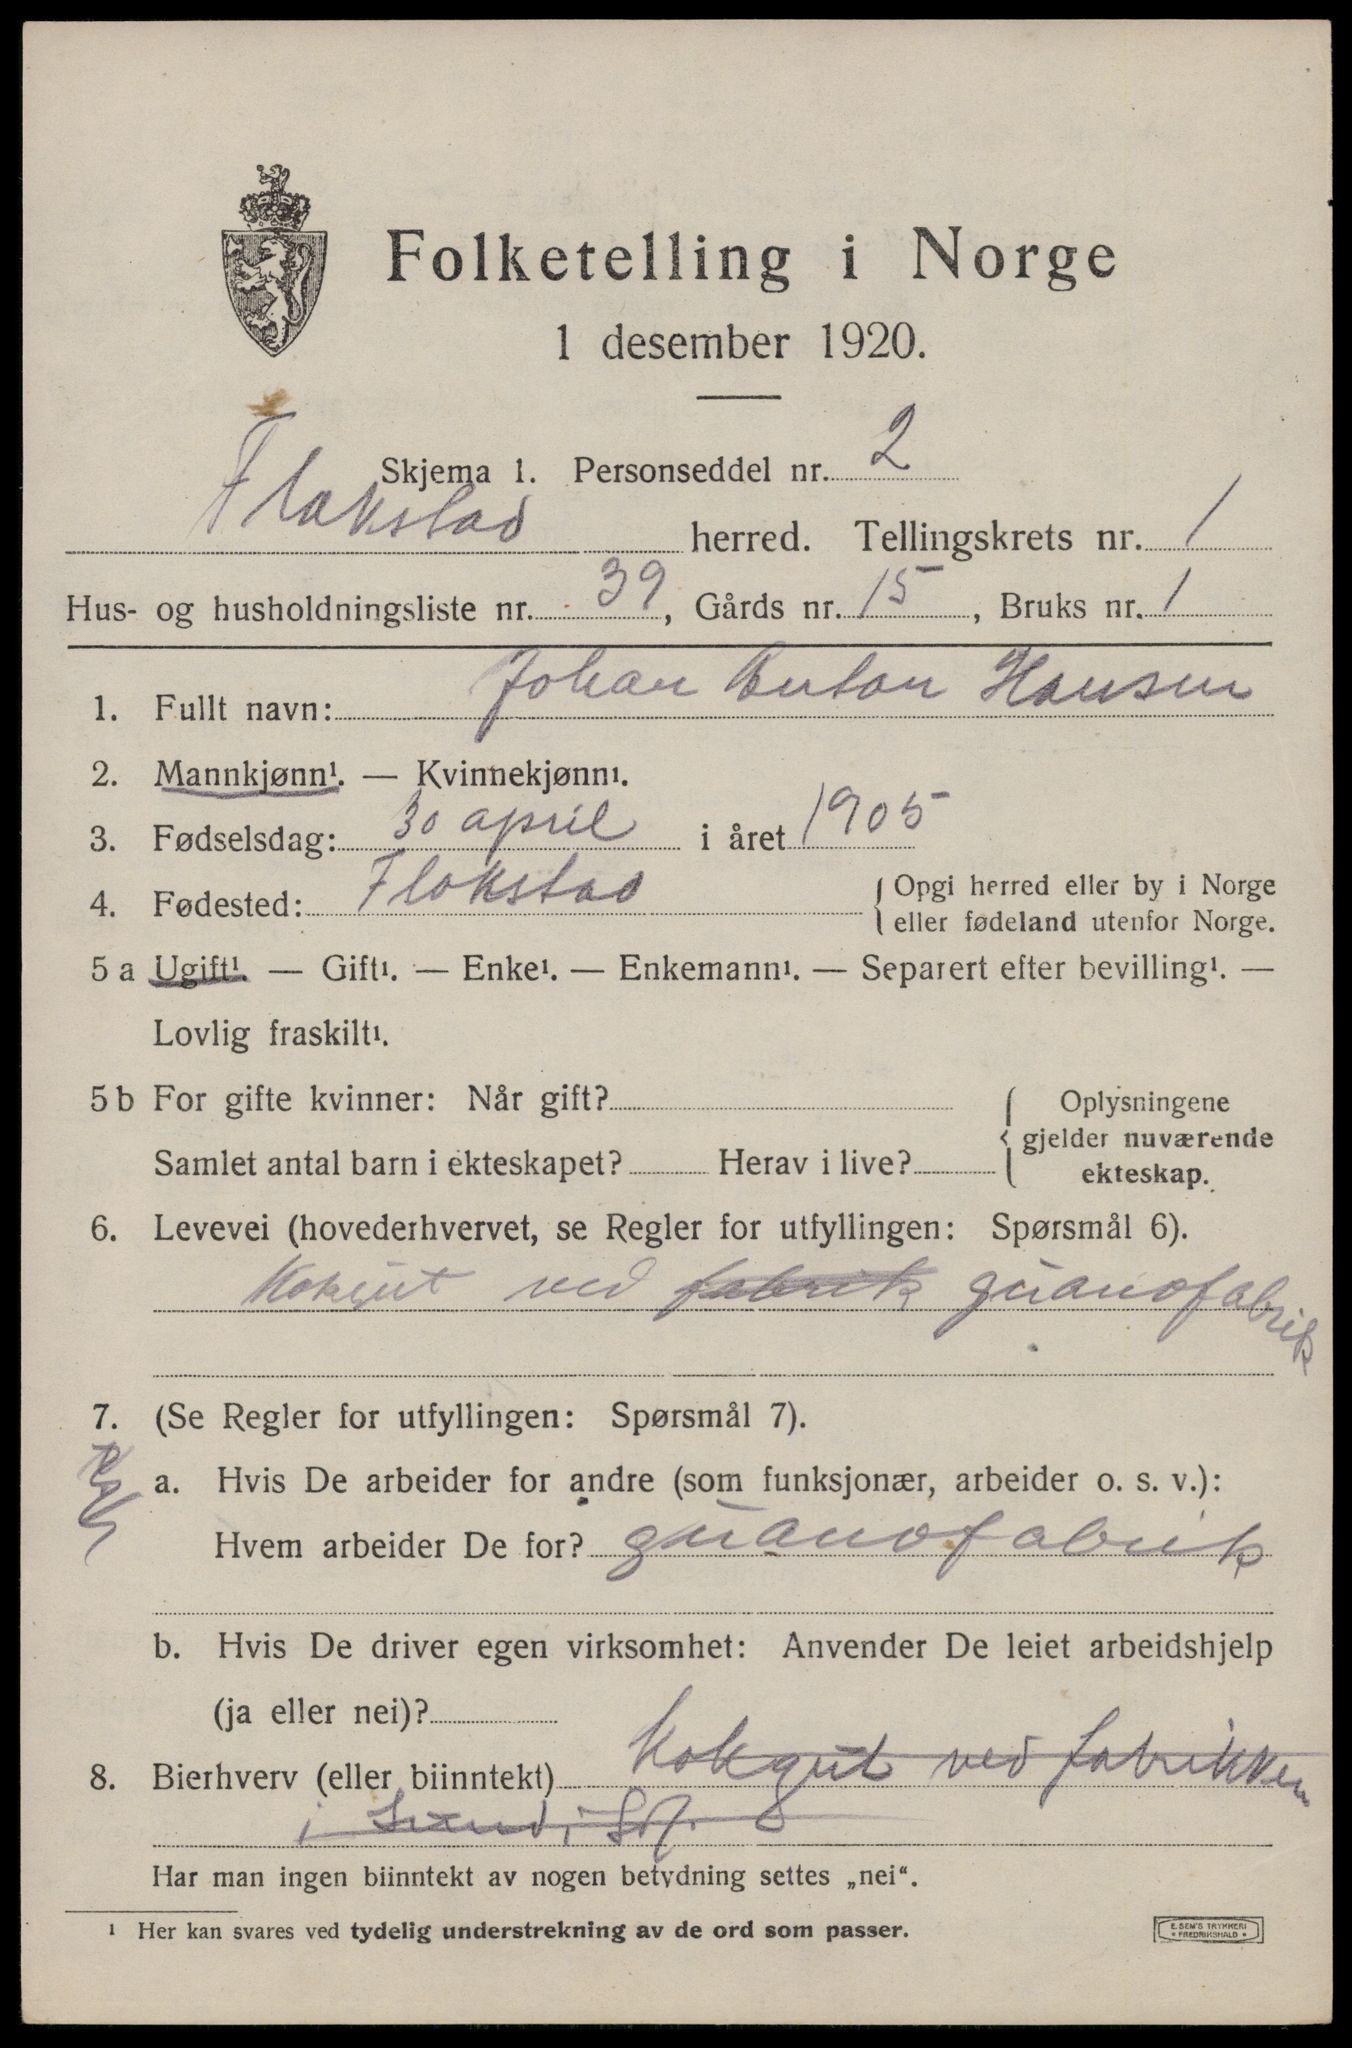 Folketelling i Norge
1 desember 1920.
Skjema 1. Personseddel nr. 2
Flakstad herred. Tellingskrets nr. 1
Hus- og husholdningsliste nr. 39, Gårds nr. 15, Bruks nr. 1
1. Fullt navn: Johan Anton Hansen
2. Mannkjønn¹. — Kvinnekjønn¹.
3. Fødselsdag: 30 april i året 1905
4. Fødested: Flakstad {Opgi herred eller by i Norge
eller fødeland utenfor Norge.
5 a Ugift¹ — Gift¹. — Enke¹. — Enkemann¹. — Separert efter bevilling¹. —
Lovlig fraskilt¹.
5 b For gifte kvinner: Når gift?
Samlet antal barn i ekteskapet? Herav i live?
{Oplysningene
gjelder nuværende
ekteskap.
6. Levevei (hovederhvervet, se Regler for utfyllingen: Spørsmål 6).
Kokgut ved fabrik guanofabrik
7. (Se Regler for utfyllingen: Spørsmål 7).
a. Hvis De arbeider for andre (som funksjonær, arbeider o. s. v.):
Hvem arbeider De for? guanofabrik
b. Hvis De driver egen virksomhet: Anvender De leiet arbeidshjelp
(ja eller nei)?
8. Bierhverv (eller biinntekt) Kokgut ved fabrikken
i Sund i
Har man ingen biinntekt av nogen betydning settes „nei“.
¹ Her kan svares ved tydelig understrekning av de ord som passer.
E. SEM'S TRYKKERI
FREDRIKSHALD